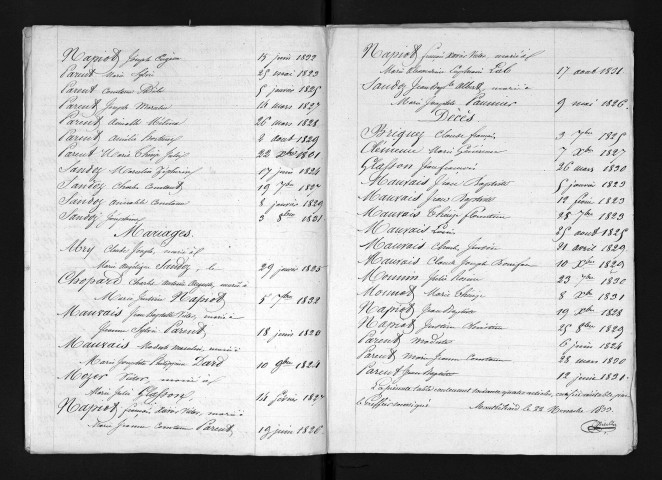 Napiot Joseph 15 juin 1822
Parent Marie Sylvie 25 mai 1823
Parent Constant 5 janvier 1825
Parent Joseph Marcelin 14 mars 1827
Parent Aimable 26 mars 1828
Parent Amélie 2 aout 1829
Parent Marie Thérèse 22 Xbre 1831
Sandoz Marcelin Zéphirin 17 juin 1824
Sandoz Charles Constant 19 7bre 1827
Sandoz Aimable Constant 8 janvier 1829
Sandoz 3 8bre 1831
Mariages.
Mry Claude Joseph, marié à
Marie Angélique Sandoz, le 29 janvier 1825
Chopard Charles Auguste, marié à
Marie Justine Napiot 5 7bre 1822
Mauvais Jean Baptiste Victor, marié à
Jeanne Sylvie Parent, 18 juin 1820
Mauvais Modeste Marcelin, marié à
Marie Josephte Philippine Dard 10 9bre 1824
Mozer Victor, marié à
Marie Julie Glasson, 14 février 1827
Napiot françois Xavier Victor, marié à
Marie Jeanne Constance Parent, 19 juin 1826
Napiot françois Xavier Victor, marié à
Marie 17 aout 1831
Sandoz Jean Bapte Albert, marié à
Marie Josephte Paumier 9 mai 1826
Décès
Briquez Claude françois 3 7bre 1825
Marie Généreuse 7 Xbre 1827
Glasson 26 mars 1830
Mauvais Jean Baptiste 5 janvier 1823
Mauvais Jean Baptiste 12 février 1823
Mauvais Thérèse florentine 28 7bre 1823
Mauvais Louis 25 aout 1825
Mauvais Charles Justin 21 avril 1829
Mauvais Claude Joseph Bonifac 10 Xbre 1829
Monnin Julie 23 7bre 1830
Monnot Marie Thérèse 8 Xbre 1831
Napiot Jean Baptiste 19 Xbre 1828
Napiot Justin 25 8bre 1829
Parent Modeste 6 juin 1824
Parent Marie Jeanne Constance 28 mars 1830
Parent Jean Baptiste 12 juin 1831.
La présente table contenant soixante quatre articles, certifiée véritable, par
le Greffier soussigné Montbéliard le 22 Novembre 1833.